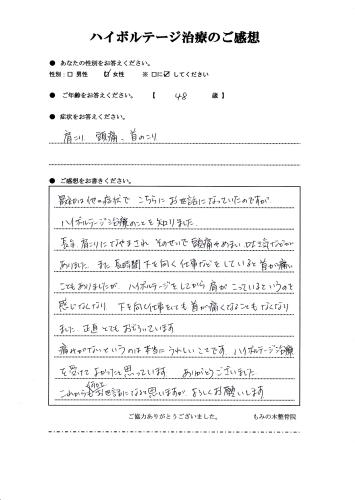 ハイボルテージ治療のご感想
● あなたの性別をお答えください。
性別：□ 男性 ☑ 女性 ※ □に☑してください
● ご年齢をお答えください。 【 48 歳 】
● 症状をお答えください。
肩こり 頭痛、首のこり
● ご感想をお書きください。
最初は他の症状で こちらに お世話になっていたのですが
ハイボルテージ治療のことを知りました。
長年 肩こりになやまされ そのせいで 頭痛やめまい などが
ありました。また 長時間 下を向く仕事などをしていると首が痛い
こともありましたが ハイボルテージをしてから 肩が こっているというのを
感じなくなり 下を向く仕事をしても 首が痛くなることもなくなり
ました 正直 とても おどろいています
痛みがないというのは本当に うれしいことです。ハイボルテージ治療
を受けて よかったと 思っています ありがとうございました
これからもお世話になると思いますが よろしくお願いします
ご協力ありがとうございました。 もみの木整骨院